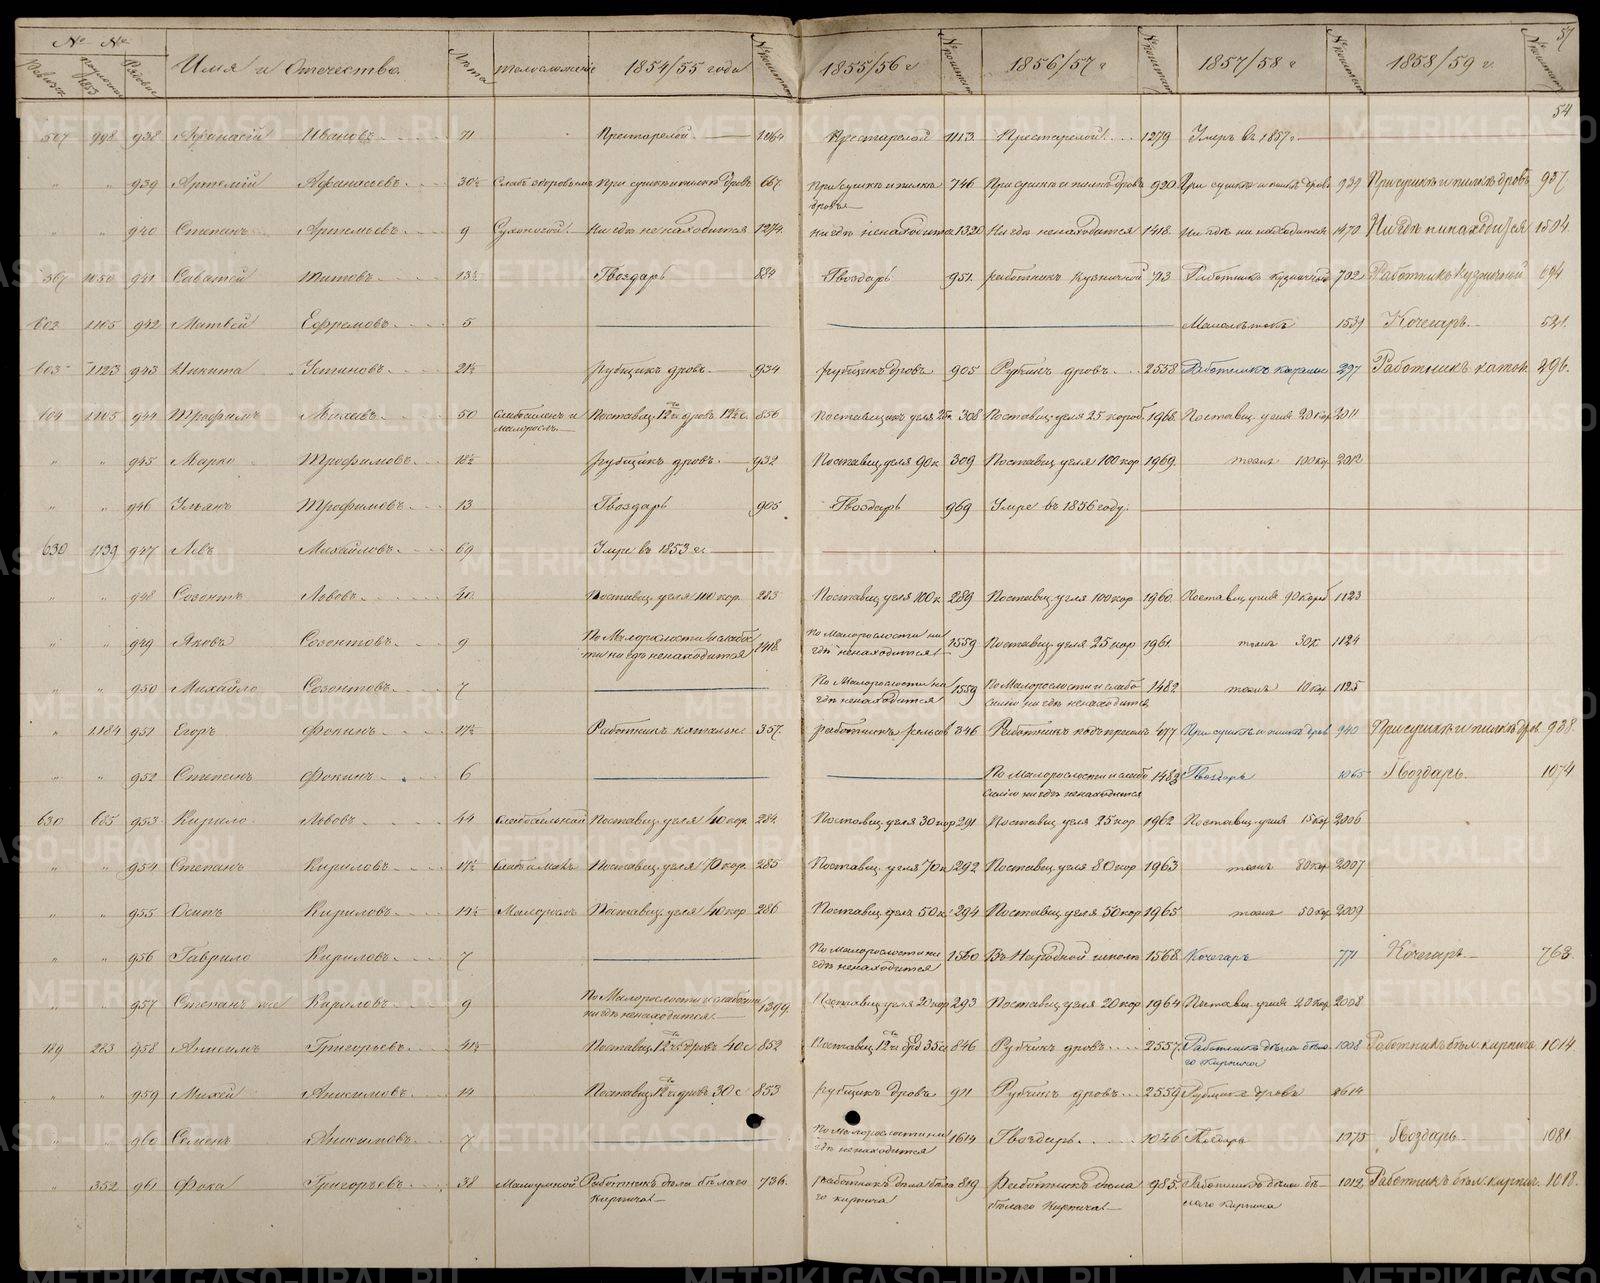 57
№ № Имя и Отечество. Лѣта Тѣлосложеніе 1854/55 года 1855/56 г 1856/57 г 1857/58 г 1858/59 г.
54
507 998 938 Афанасій Ивановъ 71 Престарелой 1064 Престарелой 1113 Престарелой 1279 Умеръ въ 1857 г.
" " 939 Артемій Афанасьевъ 30½ Слабъ здоровьемъ При сушкѣ и пилкѣ дровъ 667 При сушкѣ и пилкѣ 746 При сушкѣ и пилкѣ дровъ 920 При сушкѣ и пилкѣ дровъ 939 При сушкѣ и пилкѣ дровъ 937
дровъ
" " 940 Степанъ Артемьевъ 9 Сухоногой Ни гдѣ не находится 1274 Ни гдѣ ненаходится 1320 Ни гдѣ ненаходится 1418 Ни гдѣ не находится 1470 Ни гдѣ не находится 1504
567 1050 941 Саватей Титовъ 13½ Гвоздарь 884 Гвоздарь 951 работникъ кузничной 713 Работникъ кузничной 702 Работникъ Кузничной 694
602 1105 942 Матвей Ефремовъ 5 Малолѣтокъ 1531 Кочегаръ 521
603 1123 943 Никита Устиновъ 21½ Рубщикъ дровъ 934 рубщикъ дровъ 905 Рубщикъ дровъ 2558 Работникъ 297 Работникъ катал. 296
604 1105 944 Трофимъ 50 Слабосиленъ и Поставщ. 12 ти дровъ 12½ с. 856 Поставщикъ угля 25 к 308 Поставщ. угля 25 короб. 1968 Поставщ. угля 20 кор 2011
малоросл.
" " 945 Марко Трофимовъ 18½ рубщикъ дровъ 932 Поставщ. угля 90 к 309 Поставщ. угля 100 кор 1969 тожъ 100 кор 2012
" " 946 Ульянъ Трофимовъ 13 Гвоздарь 905 Гвоздарь 969 Умре въ 1856 году.
630 1139 947 Левъ Михайловъ 69 Умре въ 1853 г.
" " 948 Созонтъ Львовъ Поставщ. угля 100 кор. 283 Поставщ. угля 100 к 289 Поставщ. угля 100 кор 1960 Поставщ. угля 90 короб 1123
" " 949 Яковъ Созонтовъ 9 По Малорослости и слабос 1418 По Малорослости ни 1559 Поставщ. угля 25 кор 1961 тожъ 30 к 1124
ти ни гдѣ ненаходится гдѣ ненаходится
" " 950 Михайло Созонтовъ 7 По Малорослости ни 1559 По Малорослости и слабо 1482 тожъ 10 кор 1125
гдѣ ненаходится силію ни гдѣ ненаходится
" 1184 951 Егоръ Фокинъ 17½ Работникъ катальн. 357 работникъ рельсов 346 Работникъ 477 При сушкѣ и пилкѣ дров 940 При сушкѣ и пилкѣ дров. 938
" " 952 Степанъ Фокинъ 6 По малорослости и слабо 1483 Гвоздарь 1065 Гвоздарь 1074
силію ни гдѣ ненаходится
630 685 953 Кирило Львовъ 44 Слабосильной Поставщ. угля 40 кор. 284 Поставщ. угля 30 кор 291 Поставщ. угля 25 кор 1962 Поставщ. угля 15 кор 2006
" " 954 Степанъ Кириловъ 17½ Поставщ. угля 70 кор. 285 Поставщ. угля 70 к 292 Поставщ. угля 80 кор 1963 тожъ 80 кор 2007
" " 955 Осипъ Кириловъ 14½ Малорослъ Поставщ. угля 40 кор 286 Поставщ. угля 50 к 294 Поставщ. угля 50 кор 1965 тожъ 50 кор 2009
" " 956 Гаврило Кириловъ 7 По малорослости ни 1560 Въ Народной школѣ 1568 Кочегаръ 771 Кочегаръ 763
гдѣ ненаходится
" " 957 Степанъ Кириловъ 9 По Малорослости и слабости 1399 Поставщ. угля 20 кор 293 Поставщ. угля 20 кор 1964 Поставщ. угля 20 кор 2008
ни гдѣ ненаходится
189 283 958 Анисимъ Григорьевъ 41½ Поставщ. 12 ти дровъ 40 с 852 Поставщ. 12 ти др 35 с 846 Рубщикъ дровъ 2557 Работникъ дѣла бѣла 1008 Работникъ бѣл. кирпича 1014
го Кирпича
" " 959 Михей Анисимовъ 14 Поставщ. 12 ти дровъ 30 с 853 рубщикъ дровъ 911 Рубщикъ дровъ 2559 Рубщикъ дровъ 2614
" " 960 Семенъ Анисимовъ 7 По малорослости ни 1614 Гвоздарь 1046 Гвоздарь 1075 Гвоздарь 1081
гдѣ ненаходится
" 352 961 Фока Григорьевъ 38 Малоумной Работникъ дѣла бѣлаго 736 работникъ дѣла бѣла 819 Работникъ дѣла 985 Работникъ дѣла бѣ 1012 Работникъ бѣл. кирпич. 1018
Кирпича го кирпича бѣлаго Кирпича лаго Кирпича
METRIKI.GASO-URAL.RU